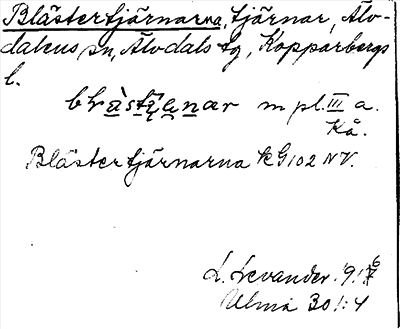 Blästertjärnarna, tjärnar, Älv-
dalens sn, Älvdals tg, Kopparbergs
l.
m pl. III a.
Kå.
Blästertjärnarna kG102 NV.
L. Levander. 19
Ulma 301:4